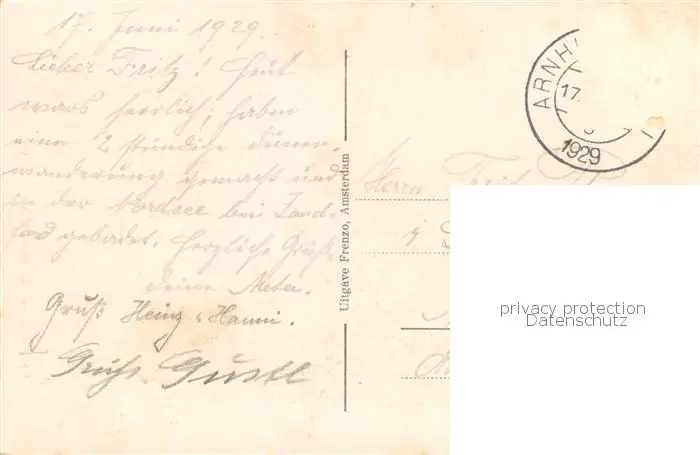 17. Juni 1929.
Lieber Fritz! Heut
wars herrlich; haben
eine 2 stündige Dünen-
wanderung gemacht und
in der Nordsee bei Zand-
gebadet. Herzliche Grüße
deine Meta.
Gruß Heinz u Hanni.
Gustl
Uitgave Frenzo, Amsterdam
ARNH
17.
1929
Herrn
privacy protection
Datenschutz